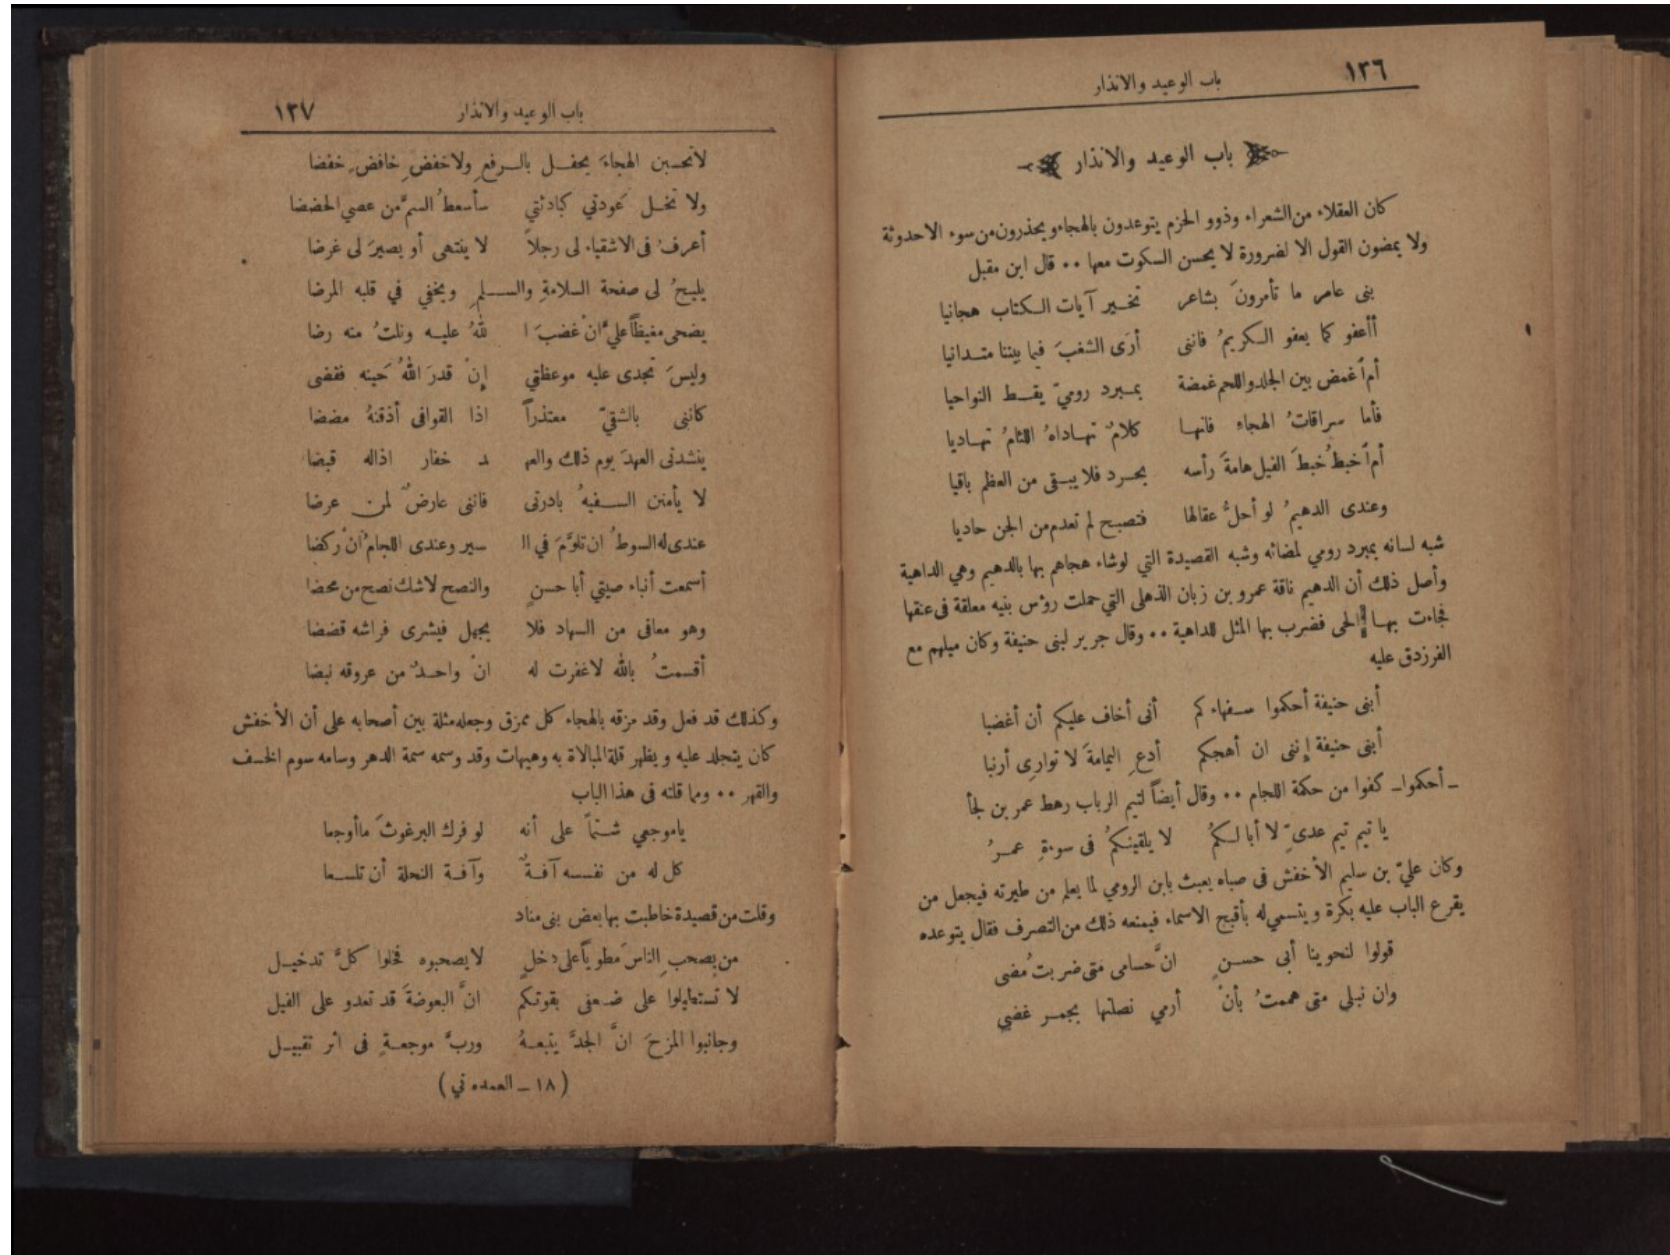 ١٣٦
باب الوعيد والانذار
باب الوعيد والانذار
كان العقلاء من الشعراء وذوو الحزم يتوعدون بالهجاء ويحذرون من سوء الاحدوثة
ولا يمضون القول الا لضرورة لا يحسن السكوت معها ٠٠ قال ابن مقبل
بنى عامر ما تأمرونَ بشاعر تخير آيات الكتاب هجانيا
أأعفو كما يعفو الكريمُ فاننى أرَى الشغبَ فيما بيننا متدانيا
أم أغمض بين الجلد واللحم غمضة بمبرد روميّ يقط النواحيا
فأما سراقاتُ الهجاءِ فانها كلامٌ تهاداهُ اللئامُ تهاديا
أم أخبطُ خبطَ الفيل هامةَ رأسه بحرد فلا يبقى من العظم باقيا
وعندى الدهيمُ لو أحلُّ عقالها فتصبح لم تعدم من الجن حاديا
شبه لسانه بمبرد رومي لمضائه وشبه القصيدة التي لوشاء هجاهم بها بالدهيم وهي الداهية
وأصل ذلك أن الدهيم ناقة عمرو بن زبان الذهلى التي حملت رؤس بنيه معلقة فى عنقها
فجاءت بها الحى فضرب بها المثل للداهية ٠٠ وقال جرير لبنى حنيفة وكان ميلهم مع
الفرزدق عليه
أبنى حنيفة أحكموا سفهاءكم أنى أخاف عليكم أن أغضبا
أبنى حنيفة إننى ان أهجكم أدعِ اليمامةَ لا توارى أرنبا
ـ أحكموا ـ كفوا من حكمة اللجام ٠٠ وقال أيضاً لتيم الرباب رهط عمر بن لجأ
يا تيم تيم عدىّ لا أبا لكمُ لا يلقينكمُ فى سوءةٍ عمرُ
وكان عليّ بن سليم الأخفش فى صباه يعبث بابن الرومي لما يعلم من طيرته فيجعل من
يقرع الباب عليه بكرة ويتسمي له بأقبح الاسماء فيمنعه ذلك من التصرف فقال يتوعده
قولوا لنحوينا أبى حسنٍ انَّ حسامى متى ضربت مُضى
وان نبلى متى هممتُ بأنْ أرمي نصلتها بجمر غضي
باب الوعيد والانذار
١٣٧
لا تحسبن الهجاءَ يحفل بالرفعِ ولا خفضِ خافضٍ خفضا
ولا تخل عَودتي كبادئتي سأسعطُ السمَّ من عصي الحضضا
أعرفُ فى الاشقياء لى رجلاً لا ينتهى أو يصيرَ لى غرضا
يليحُ لى صفحة السلامةِ والسلمِ ويخفي في قلبه المرضا
يضحى مغيظاً عليَّ انْ غضبَ ا للهُ عليه ونلتُ منه رضا
وليسَ تجدى عليه موعظتي إنْ قدرَ اللهُ حَينه فقضى
كاننى بالشقيّ معتذراً اذا القوافى أذقنهُ مضضا
ينشدنى العهدَ يوم ذلك والعه د خفار اذاله قبضا
لا يأمنن السفيهُ بادرتى فاننى عارضٌ لمن عرضا
عندى له السوطُ ان تلوَّمَ في ال سير وعندى اللجامُ انْ ركضا
أسمعت أنباء صيتي أبا حسنٍ والنصح لا شك نصح من محضا
وهو معافى من السهاد فلا يجهل فيشرى فراشه قضضا
أقسمتُ بالله لا غفرت له انْ واحدٌ من عروقه نبضا
وكذلك قد فعل وقد مزقه بالهجاء كل ممزق وجعله مثلة بين أصحابه على أن الأخفش
كان يتجلد عليه ويظهر قلة المبالاة به وهيهات وقد وسمه سمة الدهر وسامه سوم الخسف
والقهر ٠٠ ومما قلته فى هذا الباب
ياموجعي شتماً على أنه لو فرك البرغوثَ ماأوجعا
كل له من نفسه آفةٌ وآفة النحلة أن تلسعا
وقلت من قصيدة خاطبت بها بعض بنى مناد
من يصحب الناسَ مطوياً على دخلٍ لا يصحبوه فخلوا كلَّ تدخيل
لا تستطيلوا على ضعفى بقوتكم انَّ البعوضةَ قد تعدو على الفيل
وجانبوا المزحَ انَّ الجدَّ يتبعهُ وربَّ موجعةٍ فى اثر تقبيل
(١٨ ـ العمده ني)